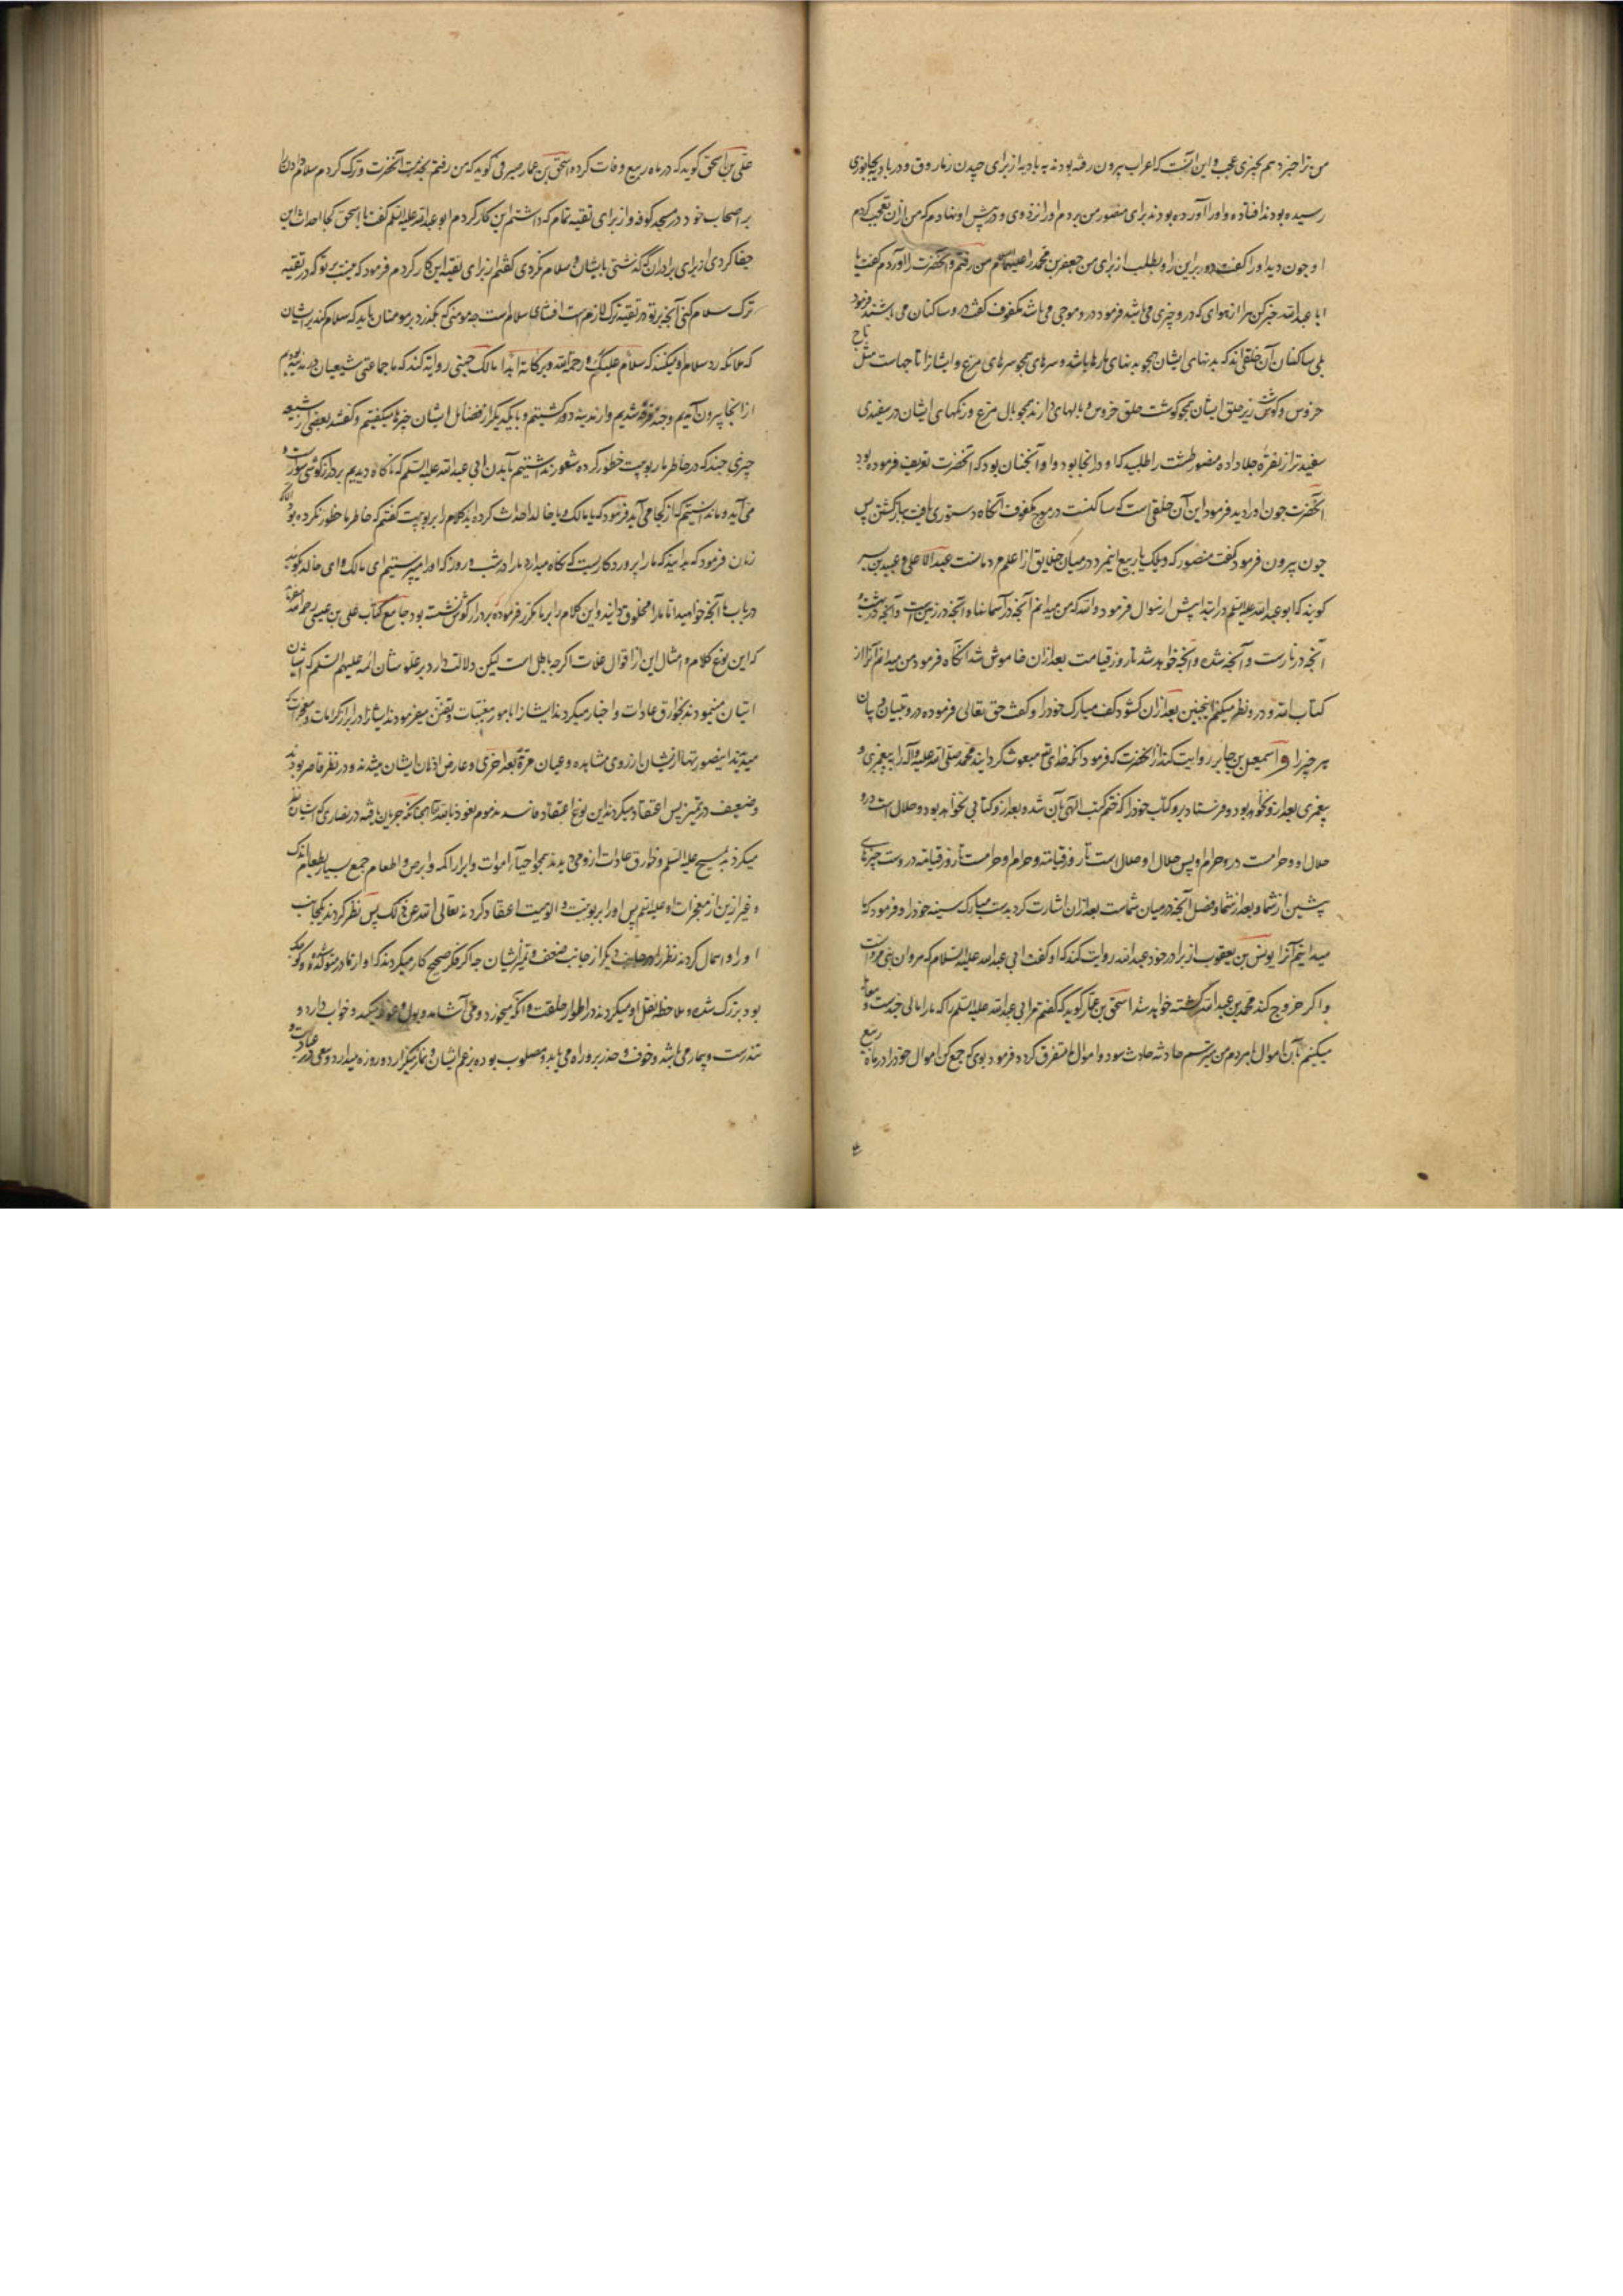 من ترا خبر دهم بچیزی عجب و این آنست که اعراب بیرون رفته بودند به بادیه از برای چیدن زماروق و در بادیه بجانوری
رسیده بودند افتاده و او را آورده بودند برای منصور من بردم او را نزد وی و در پیش او نهادم که من از آن تعجب کردم
او چون دید او را گفت دور بر این را و بطلب از برای من جعفر بن محمد را علیهما السلم من رفتم و آنحضرت را آوردم گفت یا
ابا عبدالله خبر کن مرا از هوای که درو چیزی می باشد فرمود درو موجی می باشد مکفوف گفت درو ساکنان می باشند فرمود
بلی ساکنان آن خلقی اند که بدنهای ایشان همچو بدنهای مارها باشد و سرهای همچو سرهای مرغ و ایشانرا تاجهاست مثل تاج
خروس و گوشت زیر حلق ایشان همچو گوشت حلق خروس و بالهای دارند همچو بال مرغ و رنگهای ایشان در سفیدی
سفیدتر از نقره جلا داده منصور طشت را طلبید که او در انجا بود و او آنچنان بود که آنحضرت تعریف فرموده بود
آنحضرت چون او را دید فرمود این آن خلقی است که ساکنست در موج مکفوف آنگاه دستوری یافت بباز گشتن پس
چون بیرون فرمود گفت منصور که ویلک یا ربیع اینمرد در میان خلایق از اعلم مردمانست عبد الاعلی و عبید بن بسر
گویند که ابو عبدالله علیه السلم در ابتدا پیش از سوال فرمود والله که من میدانم آنچه در آسمانها و آنچه در زمین است و آنچه در بهشت و
آنچه در نارست و آنچه شده و آنچه خواهد شد تا روز قیامت بعد از آن خاموش شد آنگاه فرمود من میدانم آنرا از
کتاب الله و درو نظر میکنم اینچنین بعد از آن گشود کف مبارک خود را و گفت حق تعالی فرموده درو تبیان و بیان
هر چیز را و اسمعیل بن جابر روایت کند از آنحضرت که فرمود آنکه خدای تع مبعوث گردانید محمد صلی الله علیه و آله را به پیغمبری و
پیغمبری بعد ازو نخواهد بود و فرستاد برو کتاب خود را که ختم کتب الهی بآن شد و بعد ازو کتابی نخواهد بود و حلال است درو
حلال او و حرامست درو حرام او پس حلال او حلال است تا روز قیامت و حرام او حرامست تا روز قیامت دروست خبرهای
پیشین از شما و بعد از شما و فصل آنچه در میان شماست بعد از آن اشارت کرد بدست مبارک سینه خود را و فرمود که ما
میدانیم آنرا یونس بن یعقوب از برادر خود عبدالله روایت کند که او گفت ابی عبدالله علیه السلام که مروان بنی مروانست
و اگر خروج کند محمد بن عبدالله کشته خواهد شد اسحق بن عمار گوید که گفتم مر ابی عبدالله علیه السلم را که ما را مالی چندست و معامله
میکنیم بآن اموال با مردم من میترسم حادثه حادث شود و اموال ما متفرق گردد فرمود بوی که جمع کن اموال خود را در ماه ربیع
علی بن اسحق گوید که در ماه ربیع وفات کرده اسحق بن عمار صیرفی گوید که من رفتم بخدمت آنحضرت و ترک کردم سلام دادن را
بر اصحاب خود در مسجد کوفه و از برای تقیه تمام که داشتم این کار کردم ابو عبدالله علیه السلم گفت یا اسحق کجا احداث این
جفا کردی از برای برادران که گذشتی بایشان و سلام نکردی گفتم از برای تقیه این کار کردم فرمود که نیست بر تو که در تقیه
ترک سلام کنی آنچه بر تو در تقیه ترک لازم است افشای سلامست چه مومنی که بگذرد بر مومنان باید که سلام کند بر ایشان
که ملائکه رد سلام او میکنند که سلام علیک و رحمة الله و برکاته ابدا مالک جهنی روایه کند که ما جماعتی شیعیان در مدینه بودیم
از انجا بیرون آمدیم و چند فرقه شدیم و از مدینه دور گشتیم و با یکدیگر از فضایل ایشان چیزها میگفتیم و گفتند بعضی از شیعه
چیزی چند که در خاطر ما ربوبیت خطور کرده شعور نداشتیم بآمدن ابی عبدالله علیه السلم که ناگاه دیدیم بر درازگوشی سوارست و
می آید و ما ندانستیم که از کجا می آید فرمود که یا مالک و یا خالد احداث کرده اید کلام را بربوبیت گفتیم که خاطر ما خطور نکرده بود الا این
زمان فرمود که بدانید که ما را پروردگاریست که نگاه میدارد ما را در شب و روز که او را میپرستیم ای مالک و ای خالد بگویید
در باب ما آنچه خواهید اما ما را مخلوق دانید و این کلام را بر ما مکرر فرموده بر درازگوش نشسته بود جامع کتاب علی بن عیسی رحمه الله گفته
که این نوع کلام و امثال این از اقوال غلات اگرچه باطل است لیکن دلالت دارد بر علو شان ائمه علیهم السلم که ایشان
اتیان مینمودند بخوارق عادات و اخبار میکردند ایشانرا بامور مغیبات و تفنن میفرمودند ایشانرا در ابراز کرامات و معجزات
میدیدند اینصورتها از ایشان از روی مشاهده و عیان مرة بعد اخری و عارض اذهان ایشان میشد و در نظر قاصر بودند
و ضعیف در تمیز پس اعتقاد میکردند این نوع اعتقاد فاسد مذموم نعوذ بالله تا همچنانکه جریان یافته در نصاری که ایشان نظر
میکردند بمسیح علیه السلم و خوارق عادات از وی می دیدند همچو احیآء اموات و ابراء اکمه و ابرص و اطعام جمع بسیار بطعام اندک
و غیر ازین از معجزات او علیه السلم پس او را بربوبیت و الوهیت اعتقاد کردند تعالی الله عن ذلک پس نظر کردند بیکجانب
او را و اهمال کردند نظر را در جانب دیگر از جانب ضعف و تمیز ایشان چه اگر فکر صحیح کار میکردند که او از مادر متولد شده و کودک
بود بزرگ شده و ملاحظه نقل او میکردند در اطوار خلقت و آنکه میخورد و می آشامد و بول و غایط میکند و خواب دارد و
تندرست و بیمار می باشد و خوف و حذر برو راه می یابد و مصلوب بوده بزعم ایشان و نماز میگزارد و روزه میدارد و سعی در عبادت و